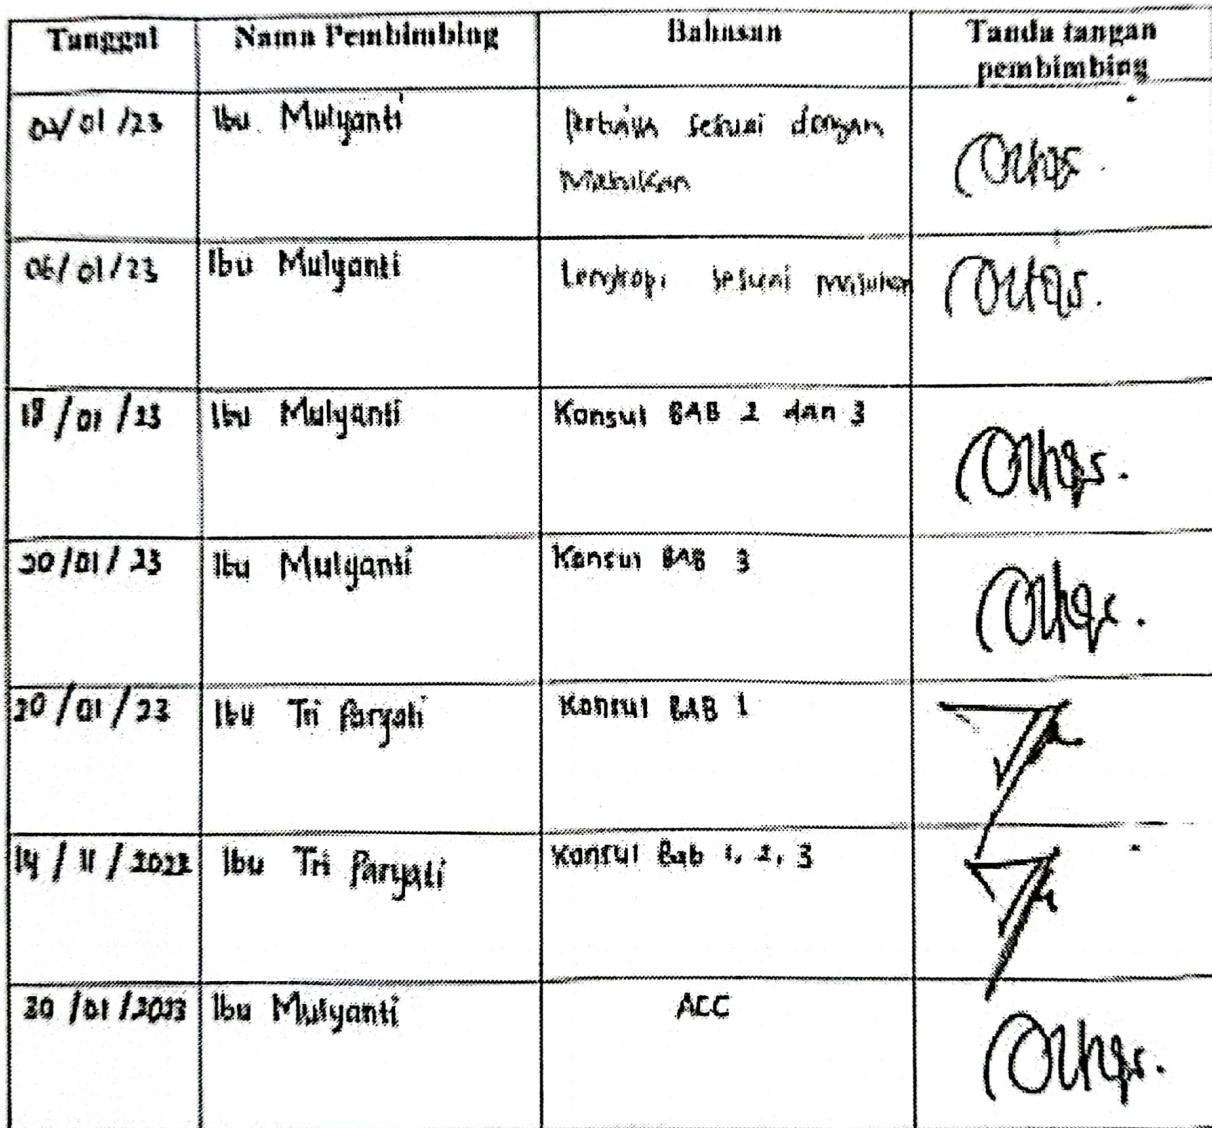 Tanggal Nama Pembimbing Bahasan Tanda tangan
pembimbing
/01/23 Ibu Mulyanti sesuai dengan
06/01/23 Ibu Mulyanti Lengkapi sesuai
/01/23 Ibu Mulyanti Konsul BAB 2 dan 3
/01/23 Ibu Mulyanti Konsul BAB 3
/01/23 Ibu Tri Paryati Konsul BAB 1
14/11/2022 Ibu Tri Paryati Konsul Bab 1, 2, 3
/01/2023 Ibu Mulyanti ACC